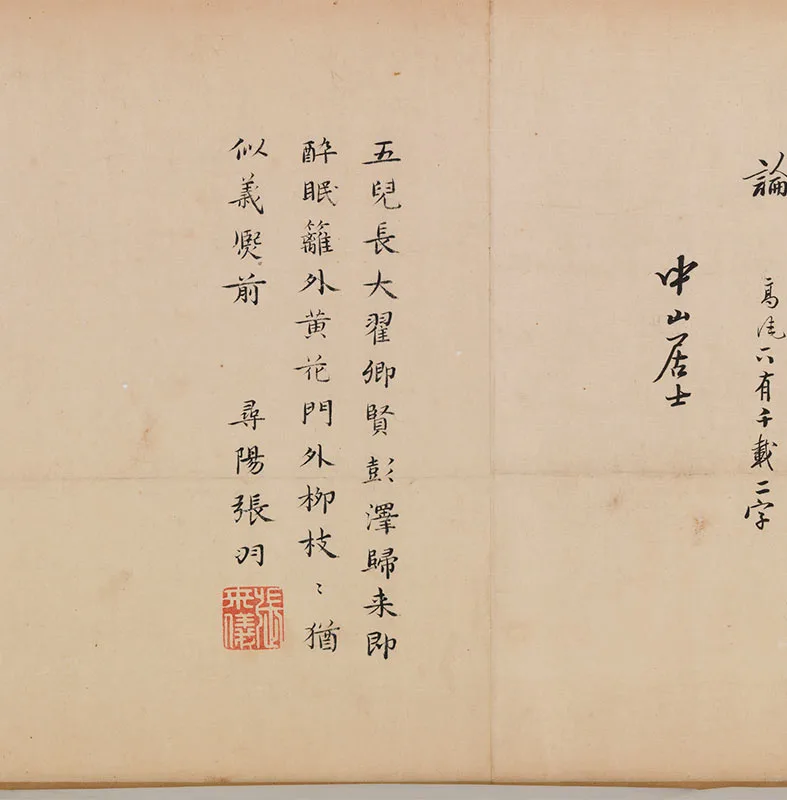 論
高風下有千載二字
中山居士
五兒長大翟卿賢彭澤歸来即
醉眠籬外黄花門外柳枝〻猶
似義熙前 尋陽張羽
張羽來儀